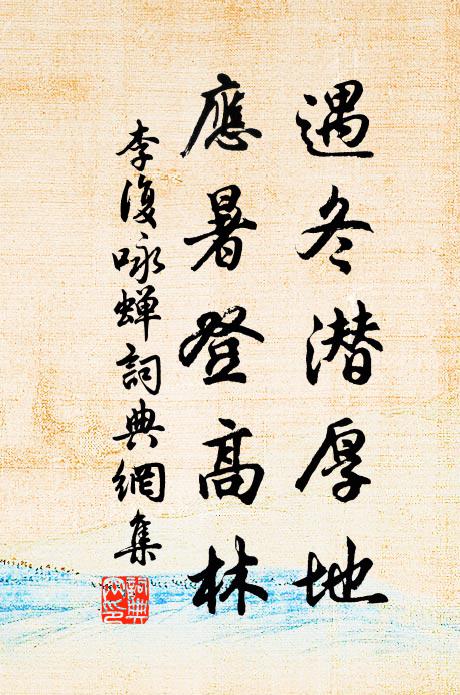 遇冬潛厚地
應暑登高林
李復咏蟬詞典網集